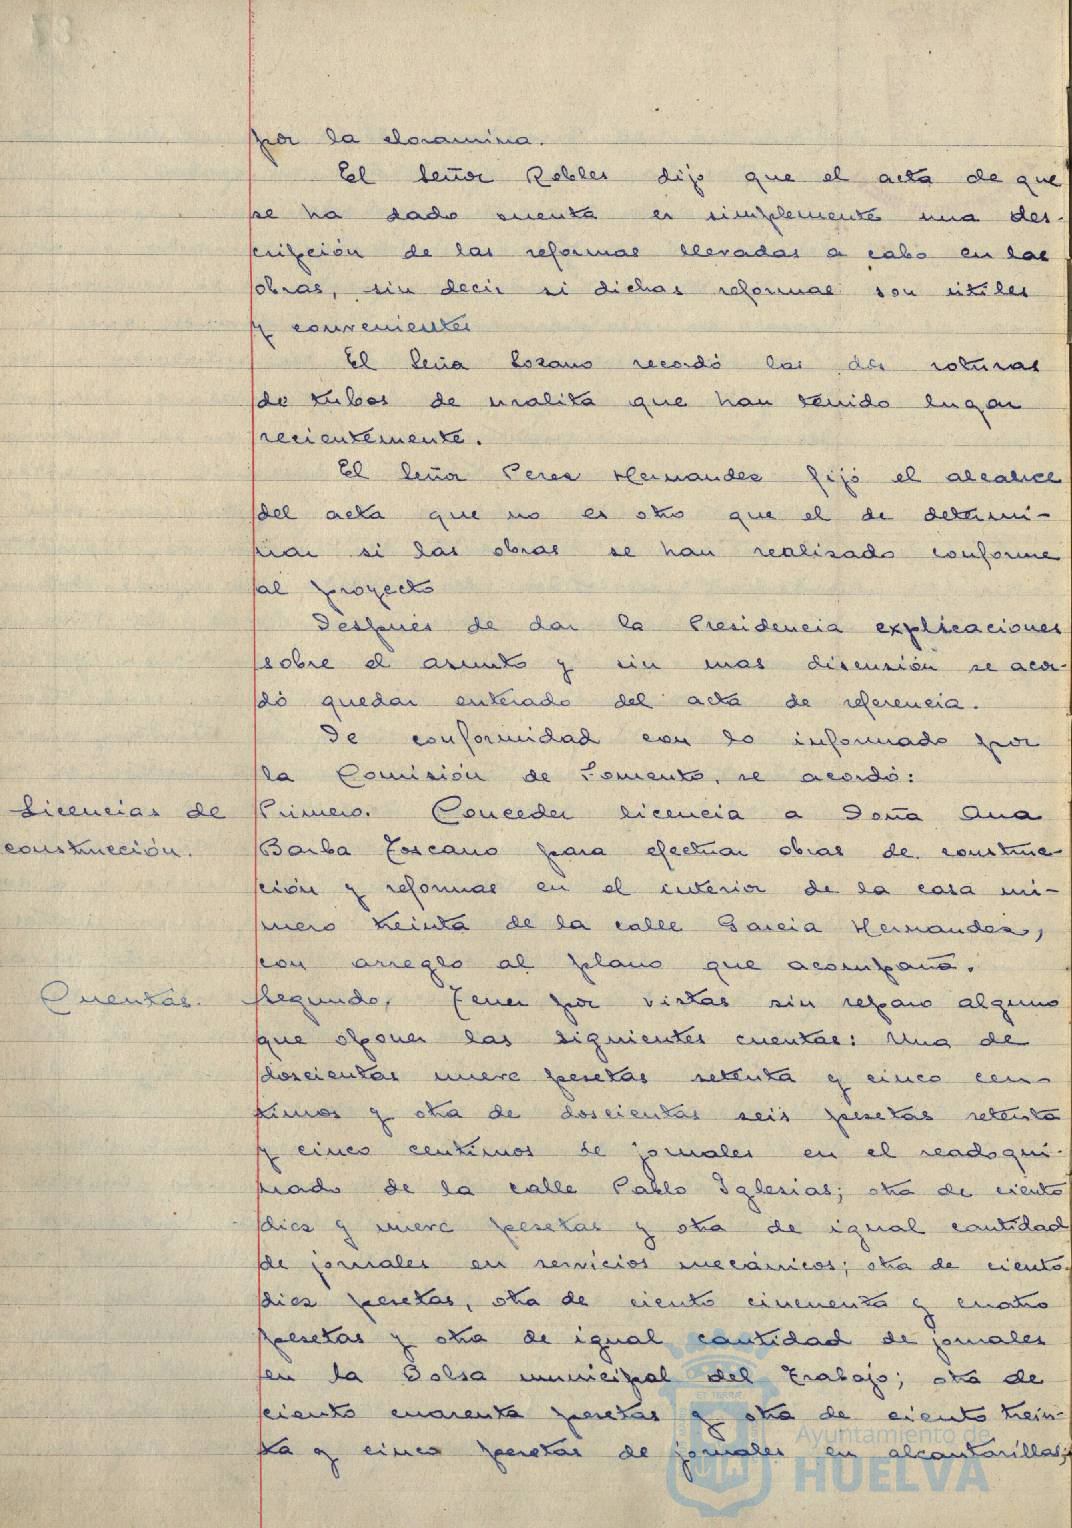 por la cloramina.
El Señor Robles dijo que el acta de que
se ha dado cuenta es simplemente una des-
cripción de las reformas llevadas a cabo en las
obras, sin decir si dichas reformas son útiles
y convenientes
El Seña Lozano recordó las dos roturas
de tubos de uralita que han tenido lugar
recientemente.
El Señor Perez Hernandez fijó el alcance
del acta que no es otro que el de determi-
nar si las obras se han realizado conforme
al proyecto
Después de dar la Presidencia explicaciones
sobre el asunto y sin mas discusión se acor-
dó quedar enterado del acta de referencia.
De conformidad con lo informado por
la Comisión de Fomento, se acordó:
Licencias de
construcción.
Primero. Conceder licencia a Doña Ana
Barba Toscano para efectuar obras de construc-
ción y reformas en el interior de la casa nú-
mero treinta de la calle Garcia Hernandez,
con arreglo al plano que acompaña.
Cuentas.
Segundo. Tener por vistas sin reparo alguno
que oponer las siguientes cuentas: Una de
doscientas nueve pesetas setenta y cinco cen-
timos y otra de doscientas seis pesetas setenta
y cinco centimos de jornales en el readoqui-
nado de la calle Pablo Iglesias; otra de ciento
diez y nueve pesetas y otra de igual cantidad
de jornales en servicios mecánicos; otra de ciento
diez pesetas, otra de ciento cincuenta y cuatro
pesetas y otra de igual cantidad de jornales
en la Bolsa municipal del Trabajo; otra de
ciento cuarenta pesetas y otra de ciento trein-
ta y cinco pesetas de jornales en alcantarillas;
Ayuntamiento de
HUELVA